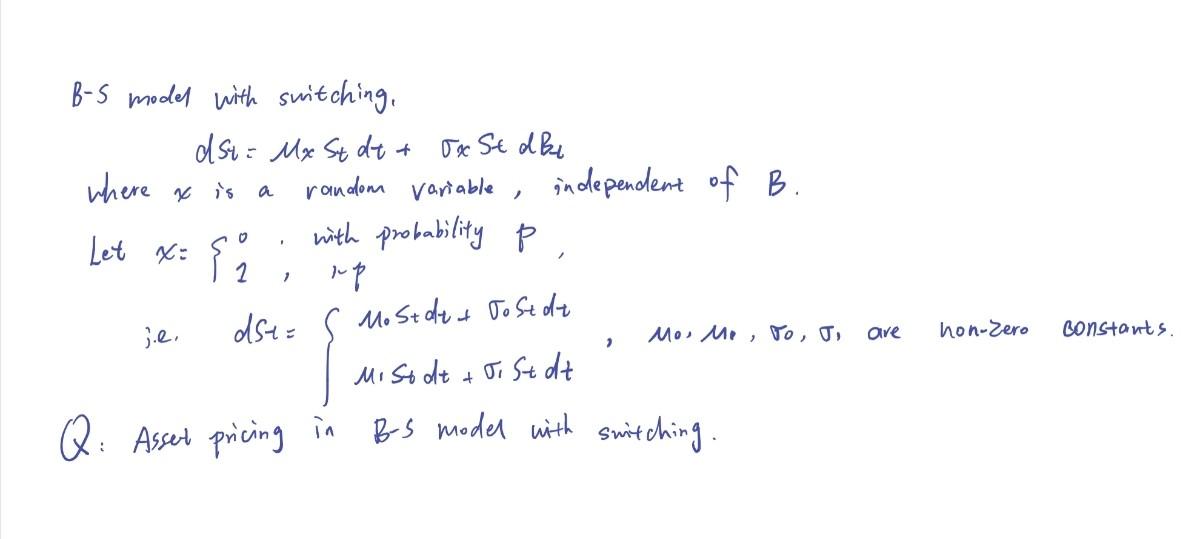 B-S model with switching.
dSt = μx St dt + σx St dBt
where x is a random variable, independent of B.
Let x = { 0 , with probability p ,
1 , 1-p
i.e. dSt = { μ0 St dt + σ0 St dt
, μ0, μ1, σ0, σ1 are non-zero constants.
μ1 St dt + σ1 St dt
Q: Asset pricing in B-S model with switching.